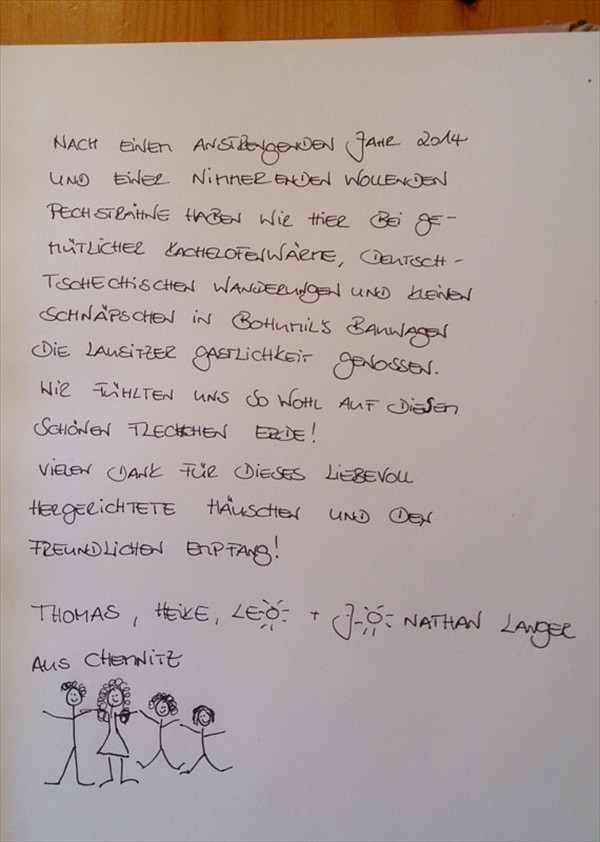 NACH EINEM ANSTRENGENDEN JAHR 2014
UND EINER NIMMER ENDEN WOLLENDEN
PECHSTRÄHNE HABEN WIR HIER BEI GE-
MÜTLICHER KACHELOFENWÄRME, DEUTSCH-
TSCHECHISCHEN WANDERUNGEN UND KLEINEN
SCHNÄPSCHEN IN BOHUMIL'S BAUWAGEN
DIE LAUSITZER GASTLICHKEIT GENOSSEN.
WIR FÜHLTEN UNS SO WOHL AUF DIESEM
SCHÖNEN FLECKCHEN ERDE!
VIELEN DANK FÜR DIESES LIEBEVOLL
HERGERICHTETE HÄUSCHEN UND DEN
FREUNDLICHEN EMPFANG!
THOMAS, HEIKE, LEO + JO NATHAN LANGER
AUS CHEMNITZ